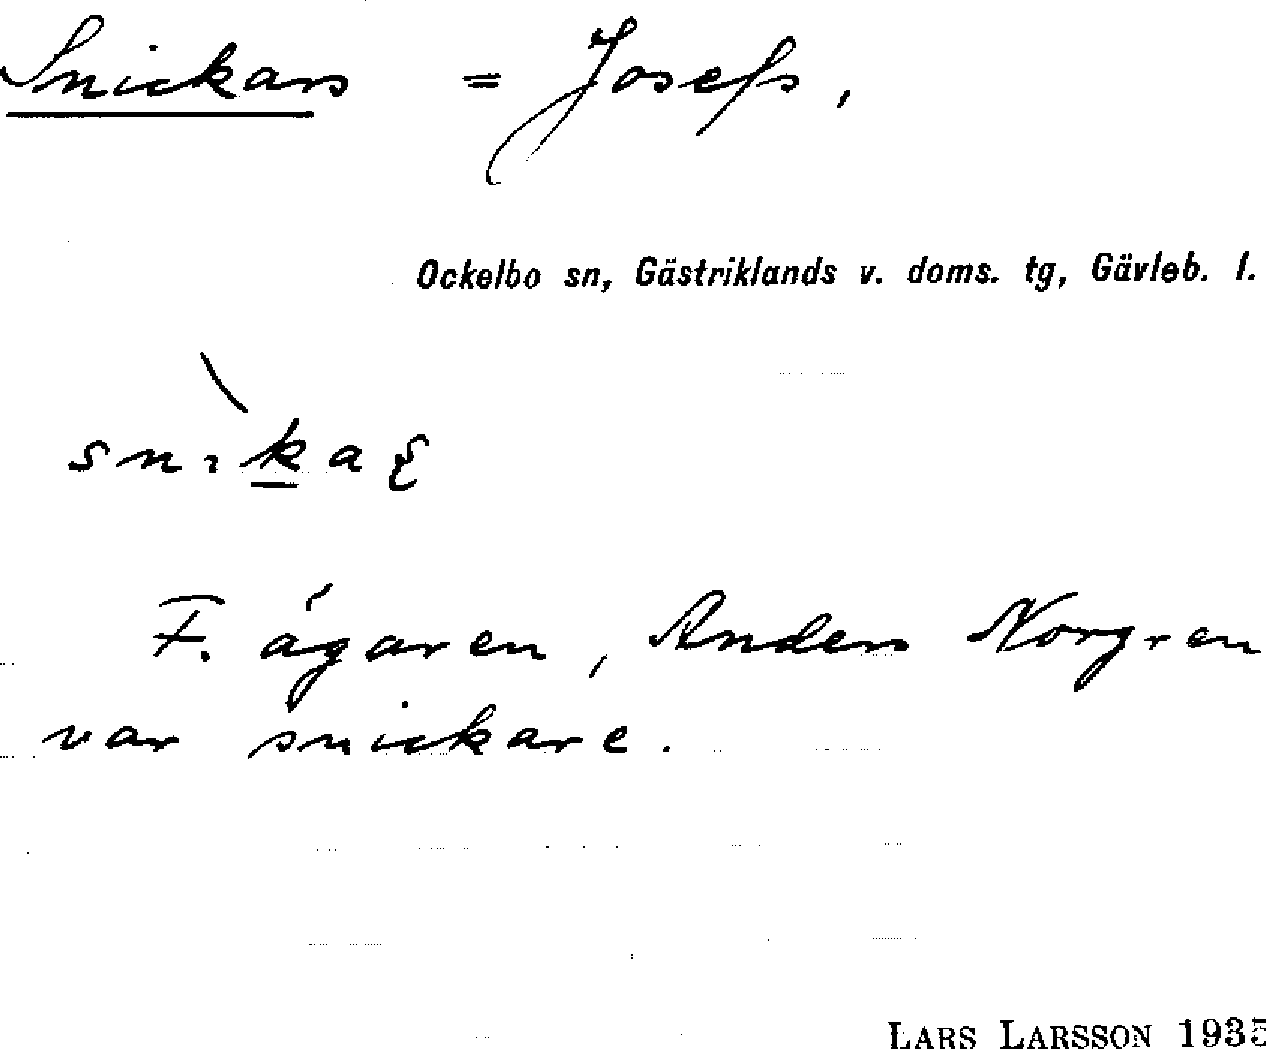 Snickars = Josefs,
Ockelbo sn, Gästriklands v. doms. tg, Gävleb. l.
F. ägaren, Anders Norgren
var snickare.
LARS LARSSON 1935